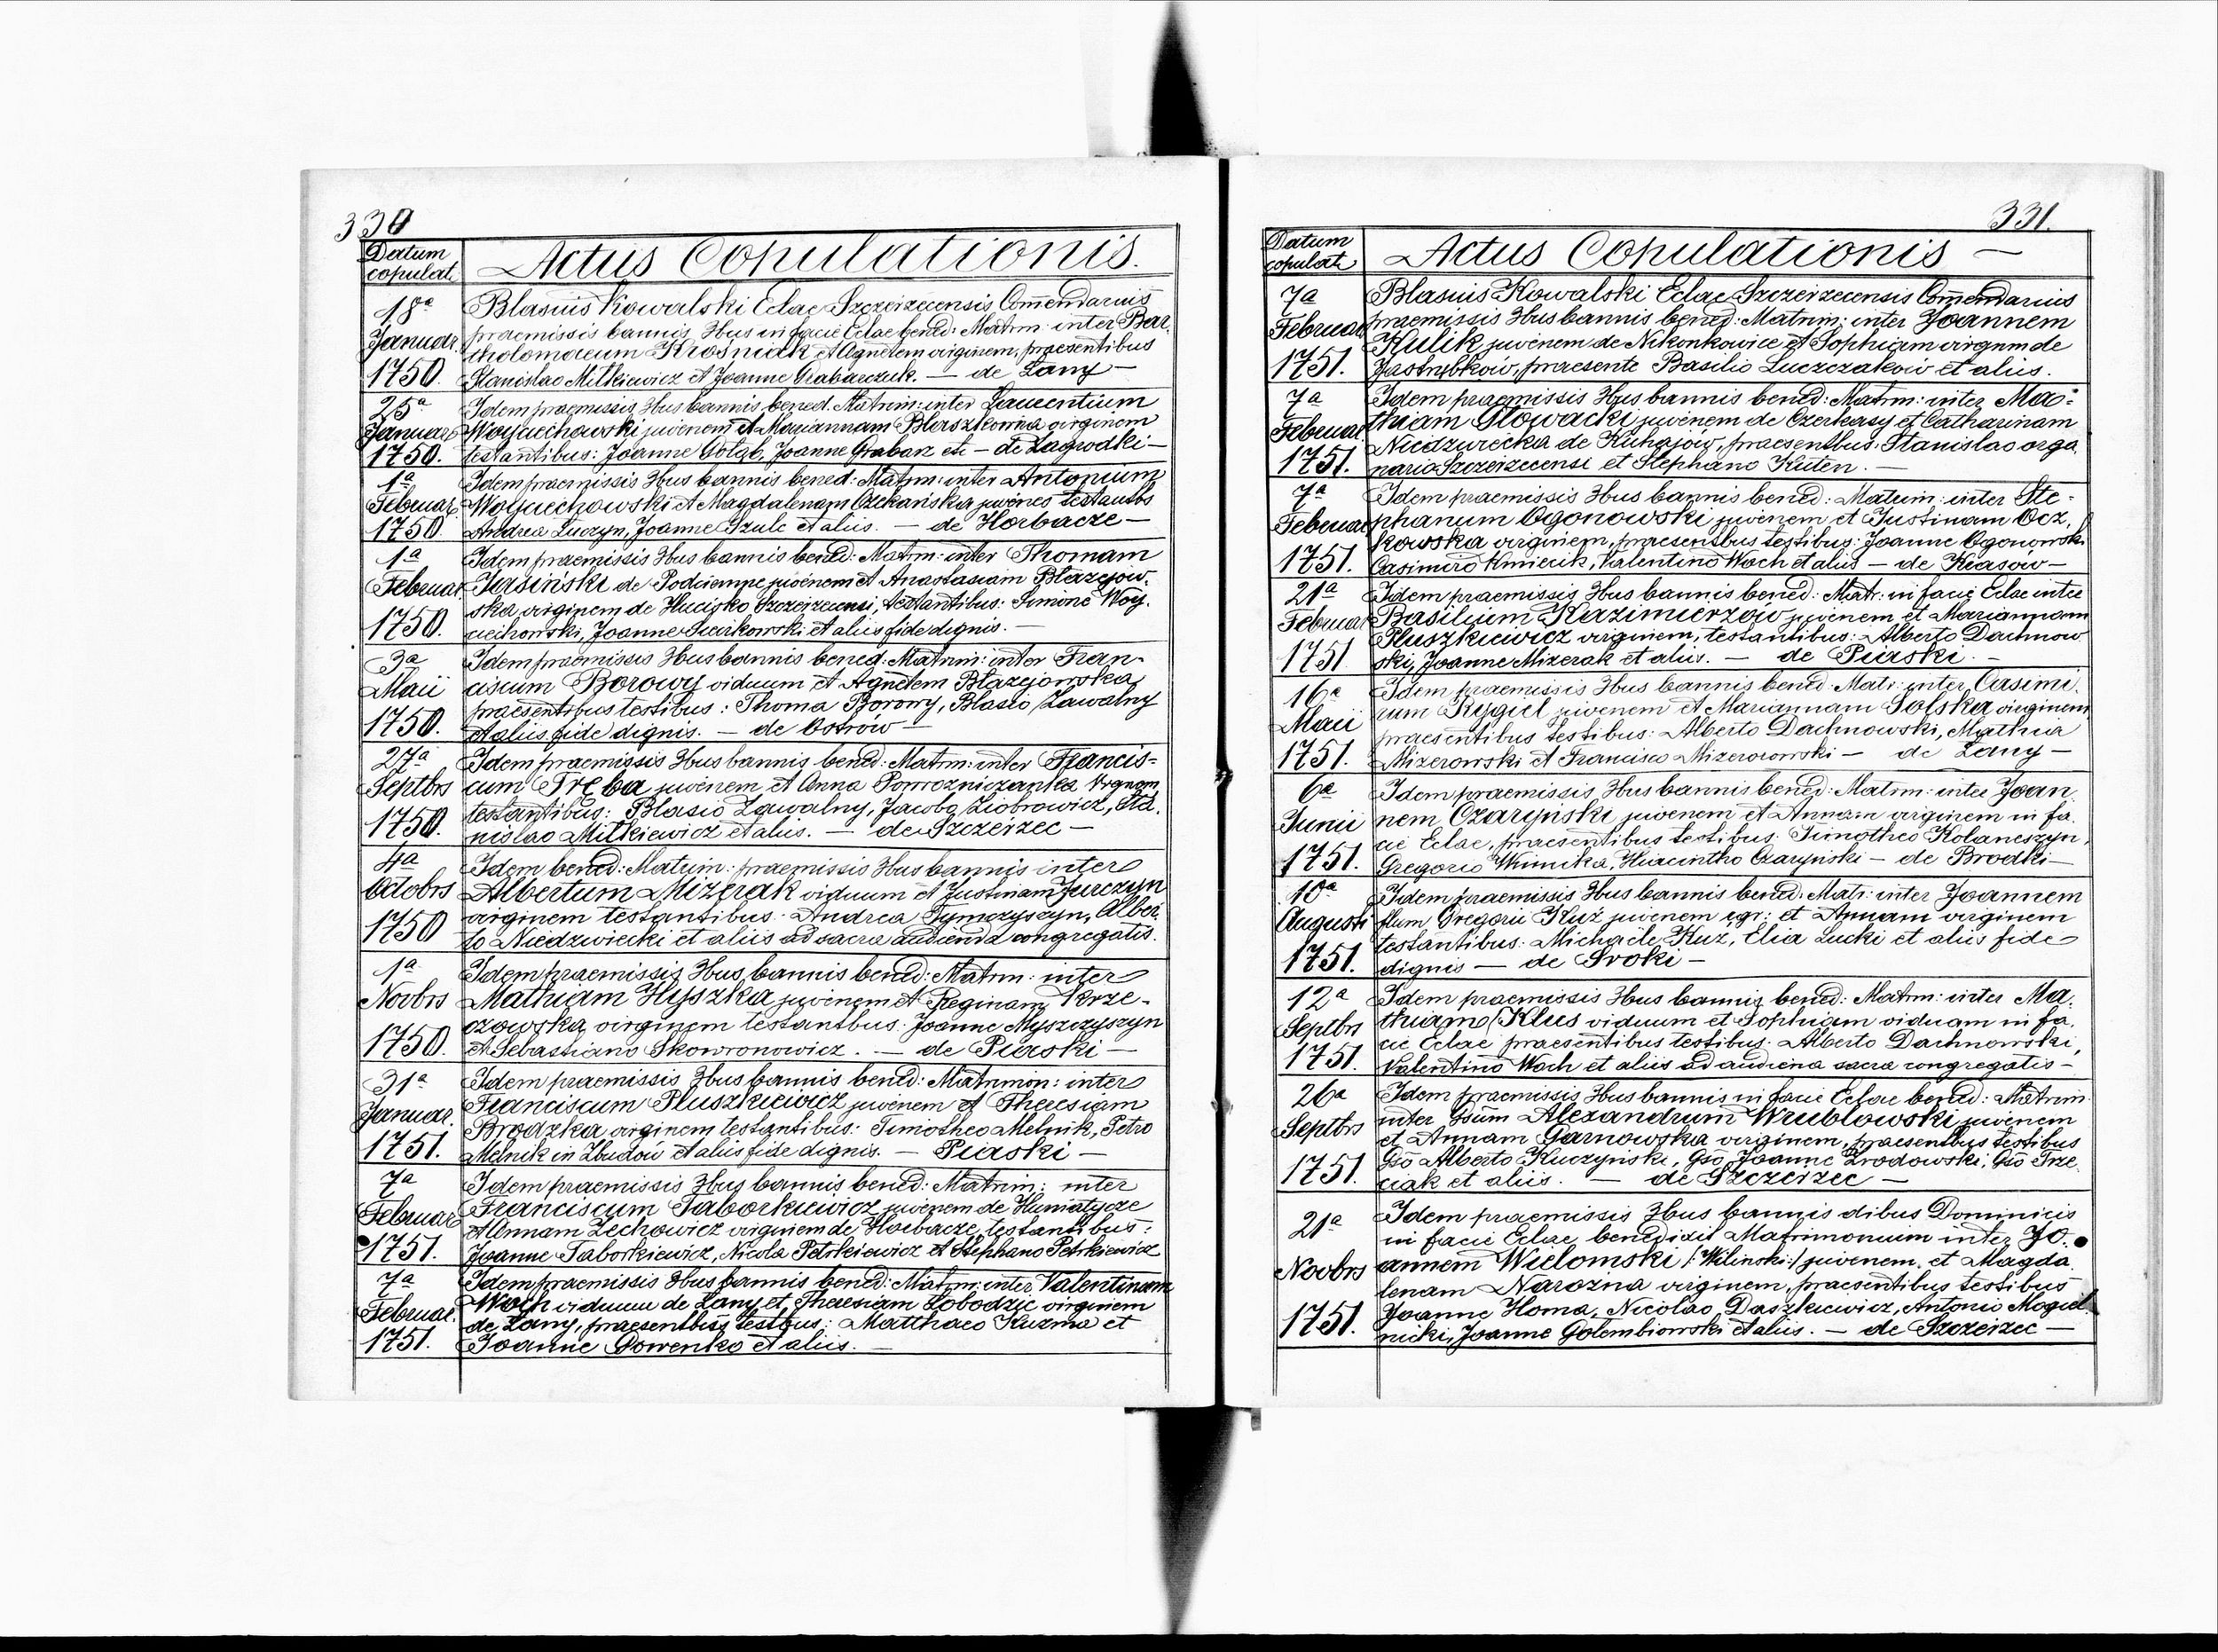 330
Datum copulat.
Actus Copulationis.
18a Januar. 1750.
Blasius Kowalski Eclae Szczeirzecensis Comendarius
praemissis bannis 3bus in facie Eclae bened: Matrm: inter Bar-
tholomaeum Krośniak et Agnetem virginem, praesentibus
Stanislao Mitkiewicz et Joanne Grabarczuk. — de Łany —
25a Januar. 1750.
Idem praemissis 3bus bannis bened. Matrim: inter Laurentium
Woyciechowski juvenem et Mariannam Błaszkowna virginem
testantibus: Joanne Gołąb, Joanne Graban etc — de Zagrodki —
1a Februar. 1750.
Idem praemissis 3bus bannis bened: Matrm: inter Antonium
Woyciechowski et Magdalenam Czekańska juvenes testantbs
Andrea Luczyn, Joanne Szulc et aliis. — de Horbacze —
1a Februar. 1750.
Idem praemissis 3bus bannis bened: Matrm: inter Thomam
Jasiński de Podciemne juvenem et Anastasiam Błażejow-
ska virginem de Hucisko Szczeirzecensi, testantibus: Simone Woy-
ciechowski, Joanne Swirkowski et aliis fide dignis. —
3a Maii 1750.
Idem praemissis 3bus bannis bened: Matrim: inter Fran-
ciscum Borowy viduum et Agnetem Błażejowska,
praesentibus testibus: Thoma Borowy, Blasio Zawalny
et aliis fide dignis. — de Ostrów —
27a Septbrs 1750.
Idem praemissis 3bus bannis bened: Matrm: inter Francis-
cum Tręba juvenem et Anna Powrozniczanka Vrgnem
testantibus: Blasio Zawalny, Jacobo Ziobrowicz, Sta-
nislao Mitkiewicz et aliis. — de Szczeirzec —
4a Octobrs 1750
Idem bened: Matrim: praemissis 3bus bannis inter
Albertum Mizerak viduum et Justinam Jurczyn
virginem testantibus: Andrea Tymczyszyn, Alber-
to Niedzwiecki et aliis ad sacra audienda congregatis.
1a Novbrs 1750.
Idem praemissis 3bus bannis bened: Matrm: inter
Mathiam Hyszka juvenem et Reginam Krze-
czowska virginem testantbus: Joanne Myszczyszyn
et Sebastiano Skowronowicz. — de Piaski —
31a Januar. 1751.
Idem praemissis 3bus bannis bened: Matrimon: inter
Franciscum Pluszkiewicz juvenem et Theresiam
Brodzka virginem testantibus: Timotheo Melnik, Petro
Melnik in Zbudów et aliis fide dignis. — Piaski —
7a Februar. 1751.
Idem praemissis 3bus bannis bened: Matrim: inter
Franciscum Taborkiewicz juvenem de Humiatycze
et Annam Zechowicz virginem de Horbacze, testantibus:
Joanne Taborkiewicz, Nicola Petrkiewicz et Stephano Petrkiewicz
7a Februar. 1751.
Idem praemissis 3bus bannis bened: Matrm: inter Valentinum
Woch viduum de Łany et Theresiam Łobodzic virginem
de Łany, praesentibus testbus: Matthaeo Kuzma et
Joanne Dowenko et aliis. —
331.
Datum copulati
Actus Copulationis —
7a Februar 1751.
Blasius Kowalski Eclae Szczeirzecensis Comendarius
praemissis 3bus bannis bened: Matrim: inter Joannem
Kulik juvenem de Nikonkowice et Sophiam virgnm de
Jastrębków, praesente Basilio Luczczaków et aliis.
7a Februar. 1751.
Idem praemissis 3bus bannis bened: Matrm: inter Ma-
thiam Głowacki juvenem de Czerkasy et Catharinam
Niedzwiecka de Kuhajów, praesentbus: Stanislao orga-
nario Szczeirzecensi et Stephano Kuten. —
7a Februar 1751.
Idem praemissis 3bus bannis bened: Matrim: inter Ste-
phanum Ogonowski juvenem et Justinam Ocz-
kowska virginem, praesentbus testibus: Joanne Ogonowski
Casimiro Kmiecik, Valentino Woch et aliis — de Kiasów —
21a Februar 1751.
Idem praemissis 3bus bannis bened: Matr: in facie Eclae inter
Basilium Kazimierzów juvenem et Mariannam
Pluszkiewicz virginem, testantibus: Alberto Dachnow-
ski, Joanne Mizerak et aliis. — de Piaski. —
16a Maii 1751.
Idem praemissis 3bus bannis bened: Matr: inter Casimi-
rum Rygiel juvenem et Mariannam Solska virginem,
praesentibus testibus: Alberto Dachnowski, Mathia
Mizerowski et Francisco Mizerowski — de Łany —
6a Junii 1751.
Idem praemissis 3bus bannis bened: Matrm: inter Joan-
nem Czaryński juvenem et Annam virginem in fa-
cie Eclae, praesentibus testibus: Timotheo Kolanczyn,
Gregorio Winnika, Hiacintho Czaryński — de Brodki —
10a Augusti 1751.
Idem praemissis 3bus bannis bened: Matr: inter Joannem
flum Gregorii Kuź juvenem egr: et Annam virginem
testantibus: Michaele Kuź, Elia Łucki et aliis fide
dignis — de Sroki —
12a Septbrs 1751.
Idem praemissis 3bus bannis bened: Matrm: inter Ma-
thiam Klus viduum et Sophiam viduam in fa-
cie Eclae praesentibus testibus: Alberto Dachnowski,
Valentino Woch et aliis ad audiena sacra congregatis —
26a Septbrs 1751.
Idem praemissis 3bus bannis in facie Eclae bened: Matrim:
inter Gsum Alexandrum Wrublowski juvenem
et Annam Garnowska virginem, praesentbus testibus
Gso Alberto Kuczyński, Gso Joanne Zrodowski, Gso Trze-
ciak et aliis. — de Szczeirzec —
21a Novbrs 1751.
Idem praemissis 3bus bannis dibus Dominicis
in facie Eclae benedixit Matrimonium inter Jo-
annem Wielomski /:Wilinski:/ juvenem, et Magda-
lenam Narożna virginem, praesentibus testibus
Joanne Homa, Nicolao Daszkiewicz, Antonio Mogiel-
nicki, Joanne Gołembiowski et aliis. — de Szczeirzec —